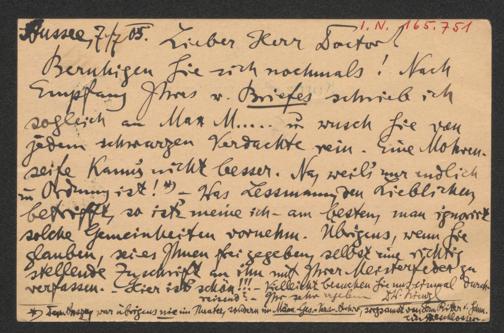 Aussee, 7/7 05. Lieber Herr Doctor!
I. N. 165.751
Beruhigen Sie sich nochmals! Nach
Empfang Ihres w. Briefes schrieb ich
sogleich an Max M..... u wusch Sie von
jedem schwarzen Verdachte rein. Eine Mohren-
seife kann's nicht besser. Na, weil's nur endlich
in Ordnung ist! *) – Was Lessmann den Lieblichen
betrifft, so ist's meine ich – am besten, man ignorirt
solche Gemeinheiten vornehm. Übrigens, wenn Sie
glauben, sei es Ihnen frei gegeben selbst eine richtig
stellende Zuschrift an ihn mit Ihrer Meisterfeder zu
verfassen. Hier ist's schön!!! – Vielleicht besuchen Sie uns einmal durch-
reisend? – Ihr sehr ergebener
war übrigens nie im Theater, sondern im